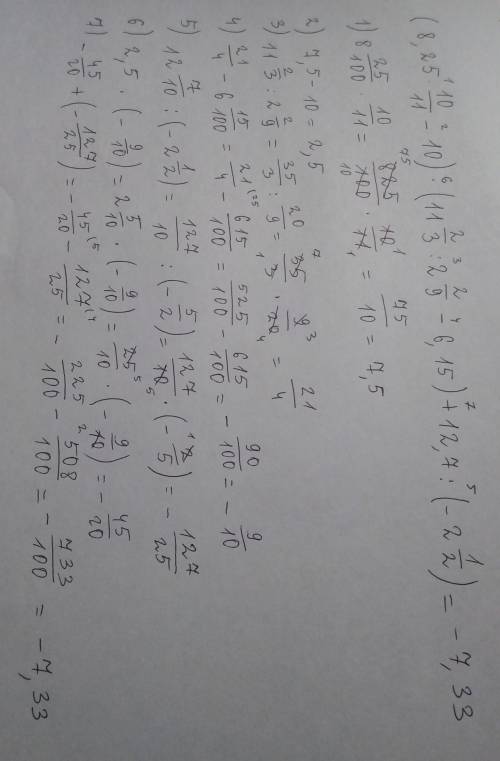 (8,25 · 10/11 - 10) : (11 2/3 : 2 2/9 - 6,15) + 12,7 : (-2 1/2) = -7,33
1) 8 25/100 · 10/11 = 825/100 · 10/11 = 75/10 = 7,5
2) 7,5 - 10 = 2,5
3) 11 2/3 : 2 2/9 = 35/3 : 20/9 = 35/3 · 9/20 = 21/4
4) 21/4 - 6 15/100 = 21/4 - 615/100 = 525/100 - 615/100 = - 90/100 = - 9/10
5) 12 7/10 : (-2 1/2) = 127/10 : (-5/2) = 127/10 · (-2/5) = - 127/25
6) 2,5 · (-9/10) = 2 5/10 · (-9/10) = 25/10 · (-9/10) = - 45/20
7) - 45/20 + (-127/25) = - 45/20 - 127/25 = - 225/100 - 508/100 = - 733/100 = -7,33